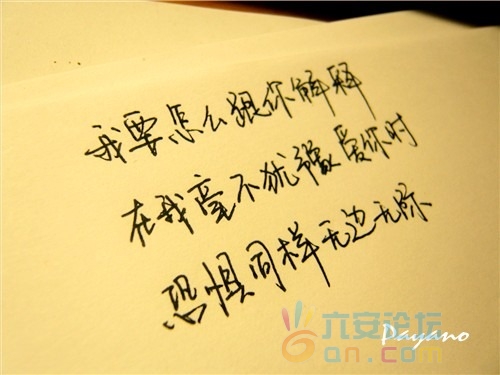 我要怎么跟你解释
在我毫不犹豫爱你时
恐惧同样无边无际
六安论坛
Payano
an.com